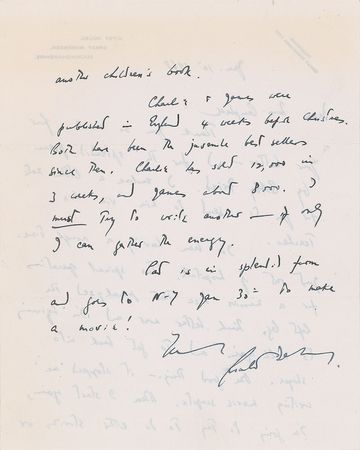 another children's book.
Charlie & James were
published in England 4 weeks before Christmas.
Both have been the juvenile best sellers
since then. Charlie has sold 12,000 in
3 weeks, and James about 8000. I
must try to write another — if only
I can gather the energy.
Pat is in splendid form
and goes to N-Y Jan 30th to make
a movie!
Roald Dahl